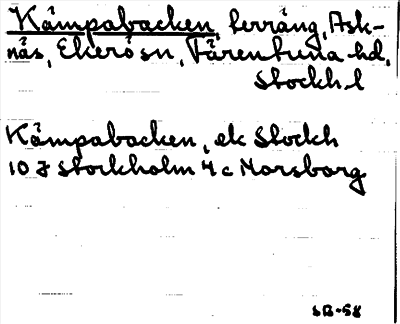 Kämpabacken, terräng, Ask-
näs, Ekerö sn, Färentuna hd,
Stockh l
Kämpabacken, ek Stockh
10 I Stockholm 4 c Norsborg